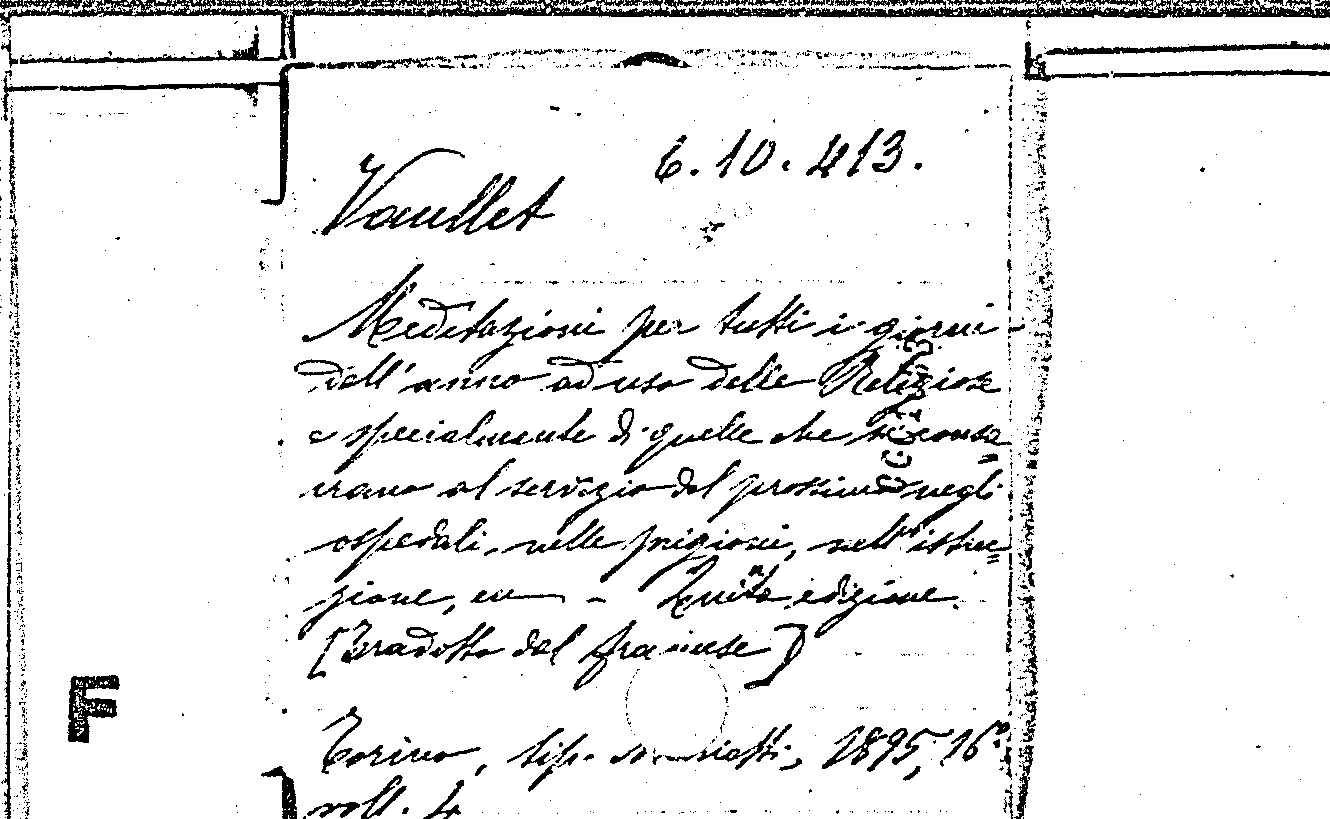 6.10.413.
Vaullet
Meditazioni per tutti i giorni
dell'anno ad uso delle Religiose
e specialmente di quelle che si consa
crano al servizio del prossimo negli
ospedali, nelle prigioni, nell'istru
zione, ecc - Quinta edizione.
[Tradotto dal francese]
F
Torino, tip. 1895, 16º
voll. 4